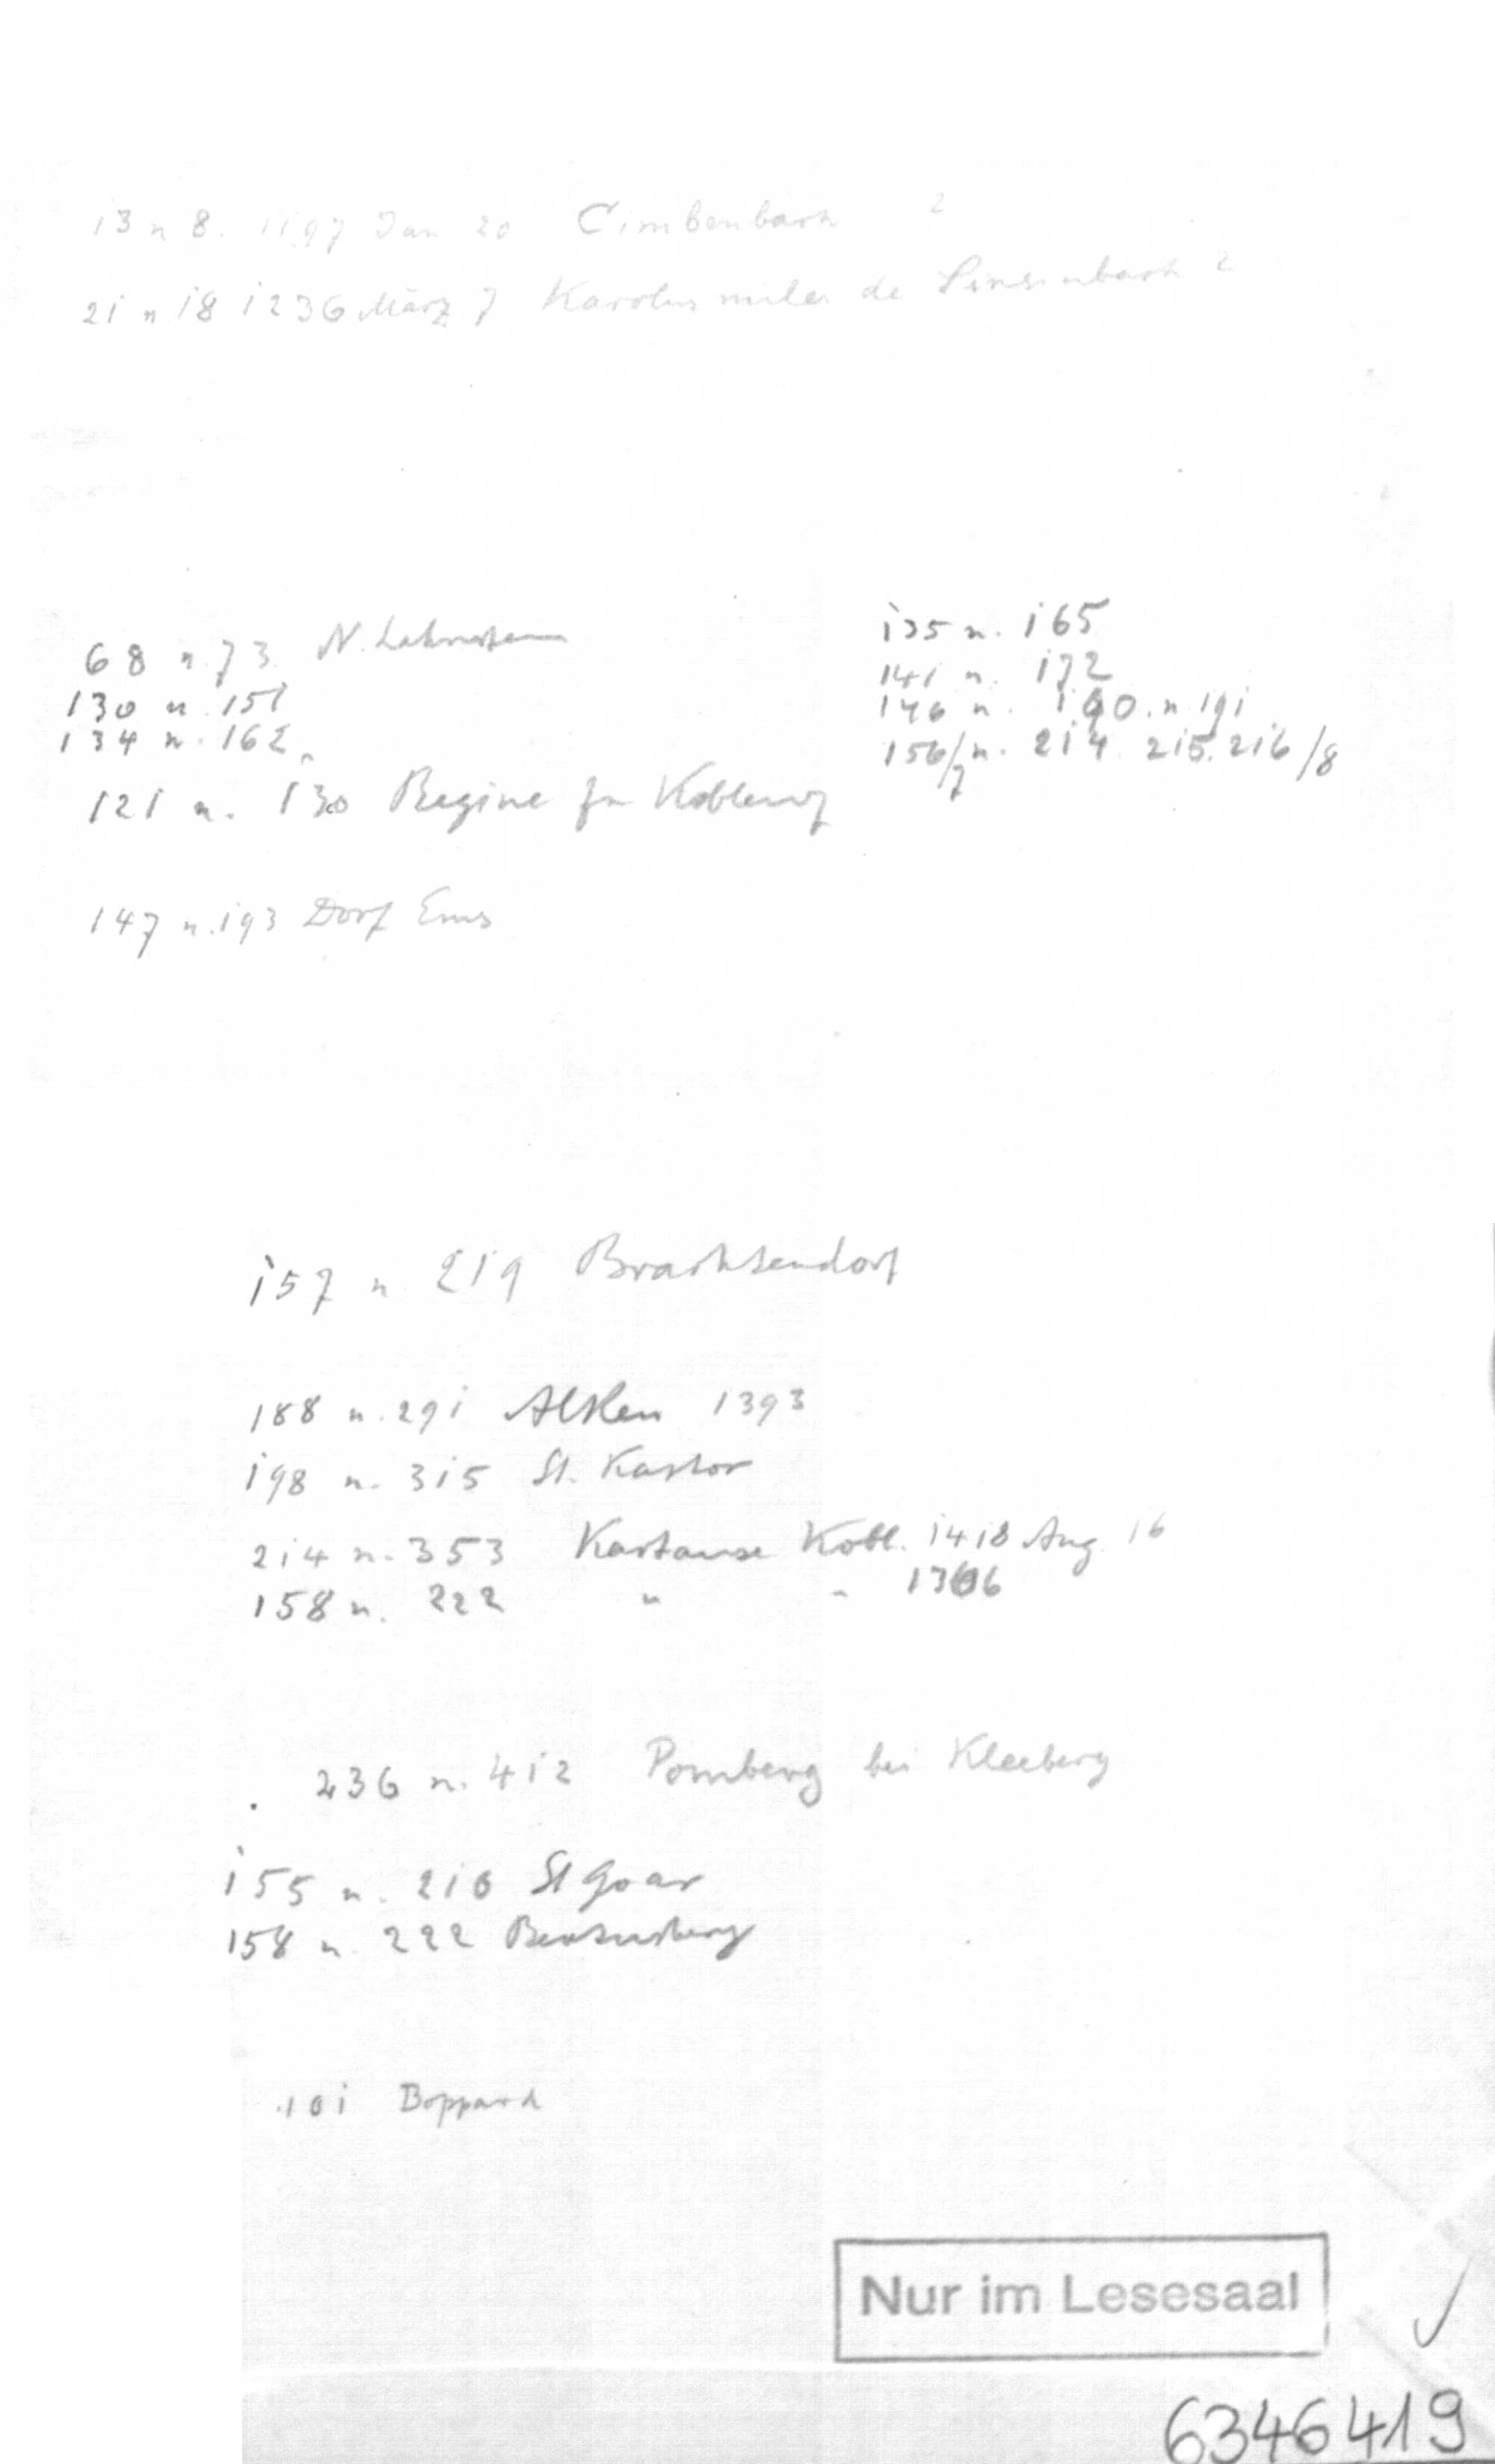 13 n 8. 1197 Jan 20 Cimbenbach ?
21 n 18 1236 März 7 Karolus miles de Linsenbach ?
68 n. 73 N. Lahnstein
130 n. 151
134 n. 162
135 n. 165
141 n. 172
146 n. 190. n 191
156/7 n. 214 215. 216/8
121 n. 130 Begine zu Koblenz
147 n. 193 Dorf Ems
157 n 219 Brachtendorf
188 n. 291 Alken 1393
198 n. 315 St. Kastor
214 n. 353 Kartause Kobl. 1418 Aug. 16
158 n. 222 " " 1366
236 n. 412 Pomberg bei Kleeberg
155 n. 210 St Goar
158 n. 222 Beatusberg
101 Boppard
Nur im Lesesaal
6346419